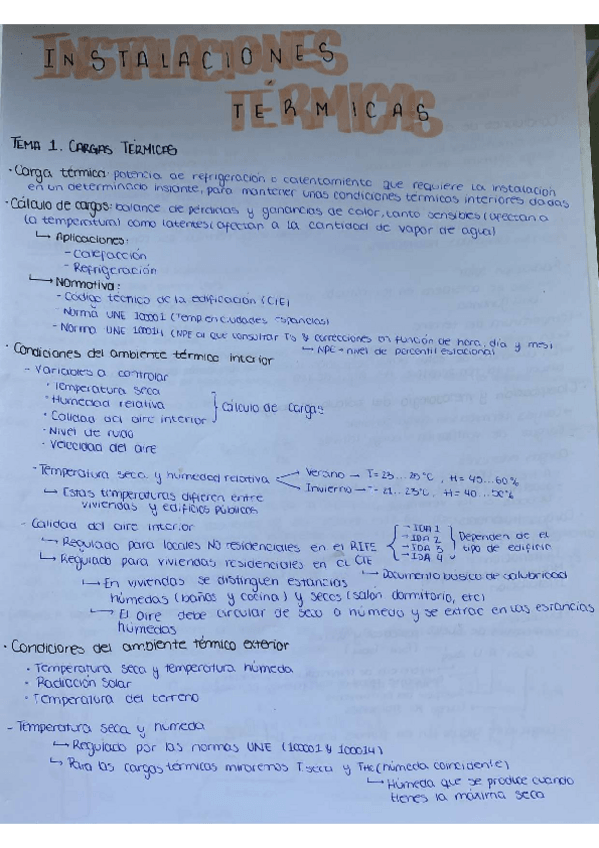 INSTALACIONES
TÉRMICAS
TEMA 1. CARGAS TÉRMICAS
· Carga térmica: potencia de refrigeración o calentamiento que requiere la instalación
en un determinado instante, para mantener unas condiciones térmicas interiores dadas
· Cálculo de cargas: balance de pérdidas y ganancias de calor, tanto sensibles (afectan a
la temperatura) como latentes (afectan a la cantidad de vapor de agua)
↳ Aplicaciones:
- Calefacción
- Refrigeración
↳ Normativa:
- Código técnico de la edificación (CTE)
- Norma UNE 100001 (Temp en ciudades españolas)
- Norma UNE 100014 (NPE al que consultar Tª y correcciones en función de hora, día y mes)
↳ NPE → nivel de percentil estacional
· Condiciones del ambiente térmico interior
- Variables a controlar
· Temperatura seca
· Humedad relativa
· Calidad del aire interior } Cálculo de cargas
· Nivel de ruido
· Velocidad del aire
- Temperatura seca y humedad relativa
Verano → T = 23...25°C, H = 45...60%
Invierno → T = 21...23°C, H = 40...50%
↳ Estas temperaturas difieren entre
viviendas y edificios públicos
- Calidad del aire interior
↳ Regulado para locales NO residenciales en el RITE { - IDA 1
- IDA 2
- IDA 3
- IDA 4 } Dependen de el
tipo de edificio
↳ Regulado para viviendas residenciales en el CTE
↳ Documento básico de salubridad
↳ En viviendas se distinguen estancias
húmedas (baños y cocina) y secos (salón dormitorio, etc)
↳ El aire debe circular de seco a húmedo y se extrae en las estancias
húmedas
· Condiciones del ambiente térmico exterior
· Temperatura seca y temperatura húmeda
· Radiación solar
· Temperatura del terreno
- Temperatura seca y humeda
↳ Regulado por las normas UNE (100001 y 100014)
↳ Para las cargas térmicas miraremos T. seca y THC (húmeda coincidente)
↳ Húmeda que se produce cuando
tienes la máxima seca